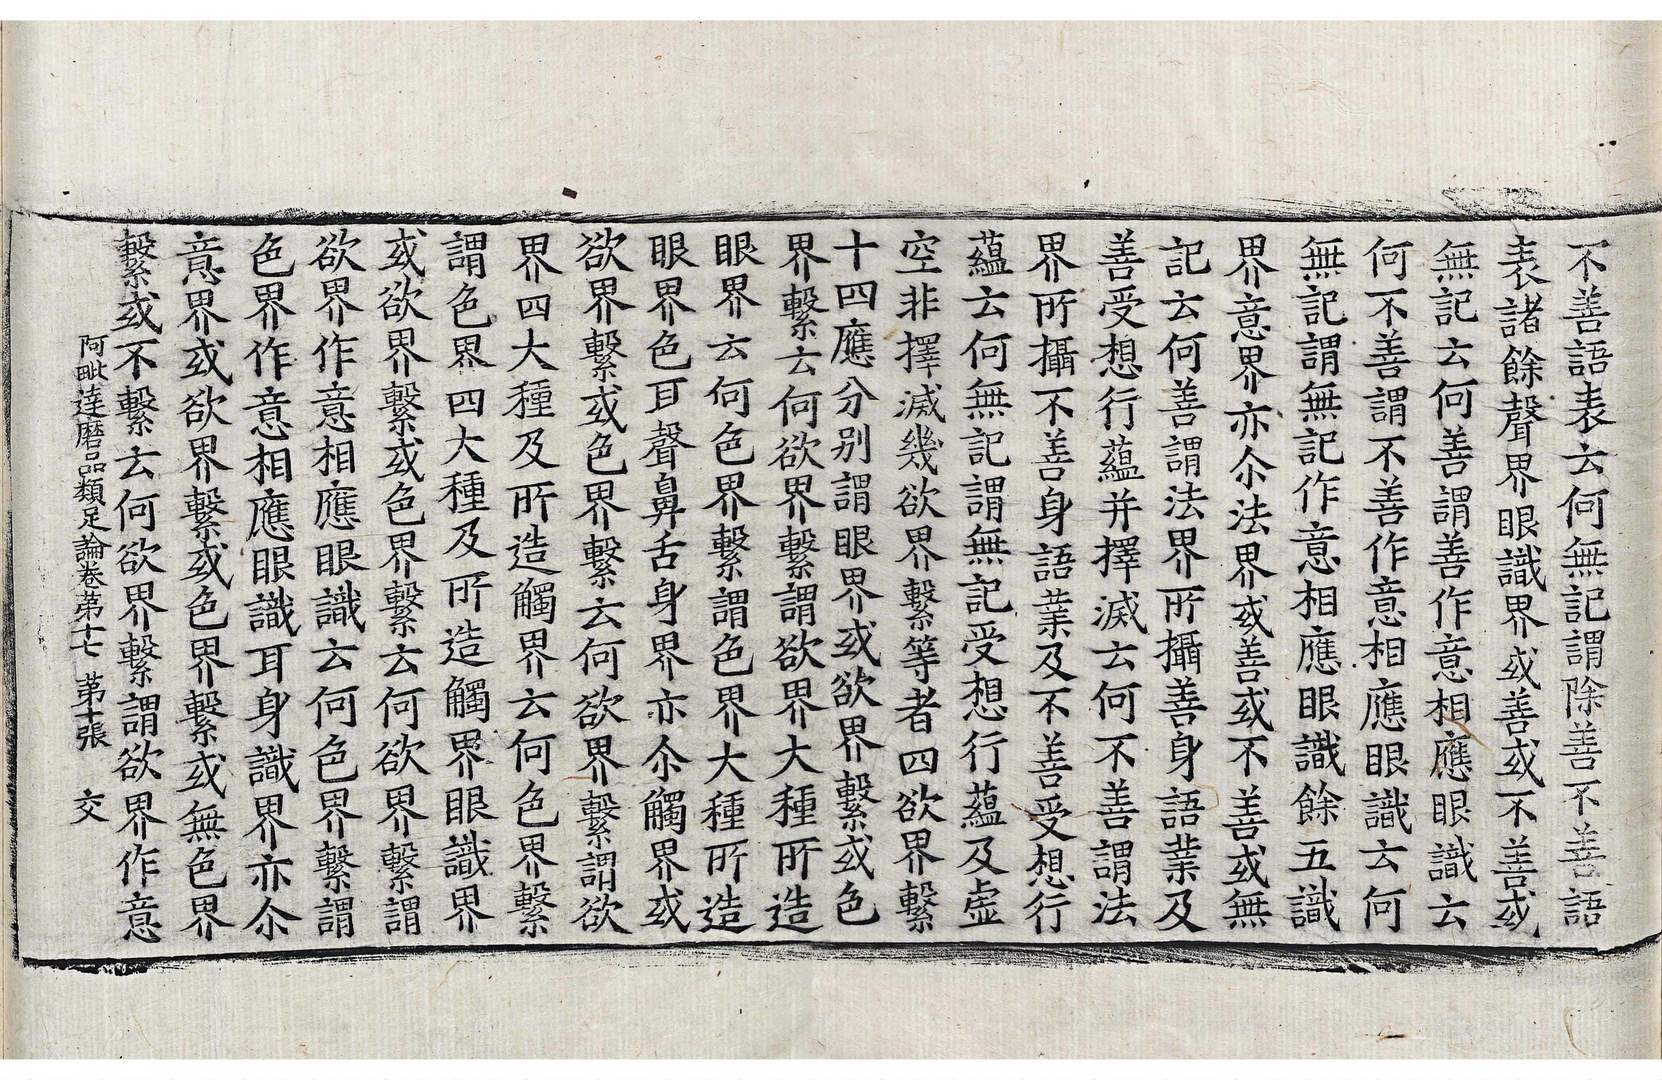 不善語表云何無記謂除善不善語
表諸餘聲界眼識界或善或不善或
無記云何善謂善作意相應眼識云
何不善謂不善作意相應眼識云何
無記謂無記作意相應眼識餘五識
界意界亦尒法界或善或不善或無
記云何善謂法界所攝善身語業及
善受想行蘊并擇滅云何不善謂法
界所攝不善身語業及不善受想行
蘊云何無記謂無記受想行蘊及虛
空非擇滅幾欲界繫等者四欲界繫
十四應分別謂眼界或欲界繫或色
界繫云何欲界繫謂欲界大種所造
眼界云何色界繫謂色界大種所造
眼界色耳聲鼻舌身界亦尒觸界或
欲界繫或色界繫云何欲界繫謂欲
界四大種及所造觸界云何色界繫
謂色界四大種及所造觸界眼識界
或欲界繫或色界繫云何欲界繫謂
欲界作意相應眼識云何色界繫謂
色界作意相應眼識耳身識界亦尒
意界或欲界繫或色界繫或無色界
繫或不繫云何欲界繫謂欲界作意
阿毗達磨品類足論卷第十七 第十張 交